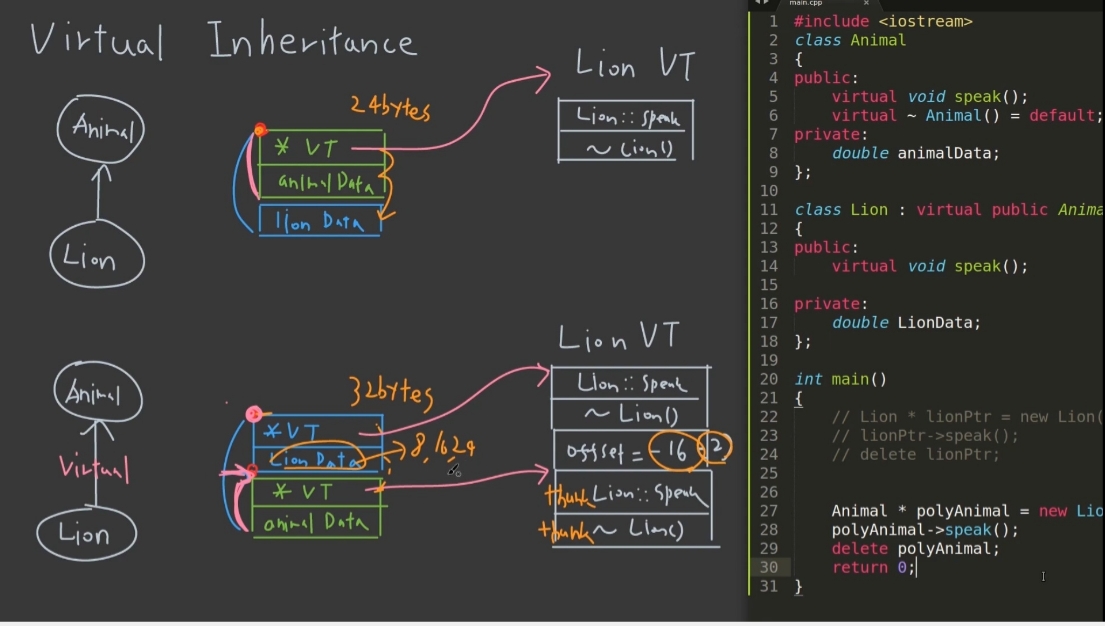 Virtual Inheritance
Animal
Lion
24bytes
* VT
animalData
lion Data
Lion VT
Lion::speak
~Lion()
Animal
Virtual
Lion
32bytes
*VT
Lion Data
8,16,24
* VT
animal Data
Lion VT
Lion::speak
~Lion()
offset = -16
thunk Lion::speak
thunk ~Lion()
main.cpp x
1 #include <iostream>
2 class Animal
3 {
4 public:
5 virtual void speak();
6 virtual ~ Animal() = default;
7 private:
8 double animalData;
9 };
10
11 class Lion : virtual public Anima
12 {
13 public:
14 virtual void speak();
15
16 private:
17 double LionData;
18 };
19
20 int main()
21 {
22 // Lion * lionPtr = new Lion(
23 // lionPtr->speak();
24 // delete lionPtr;
25
26
27 Animal * polyAnimal = new Lio
28 polyAnimal->speak();
29 delete polyAnimal;
30 return 0;
31 }